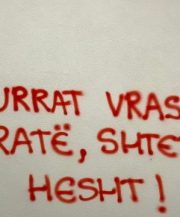 URRAT VRAS
RATË, SHTE
HESHT!